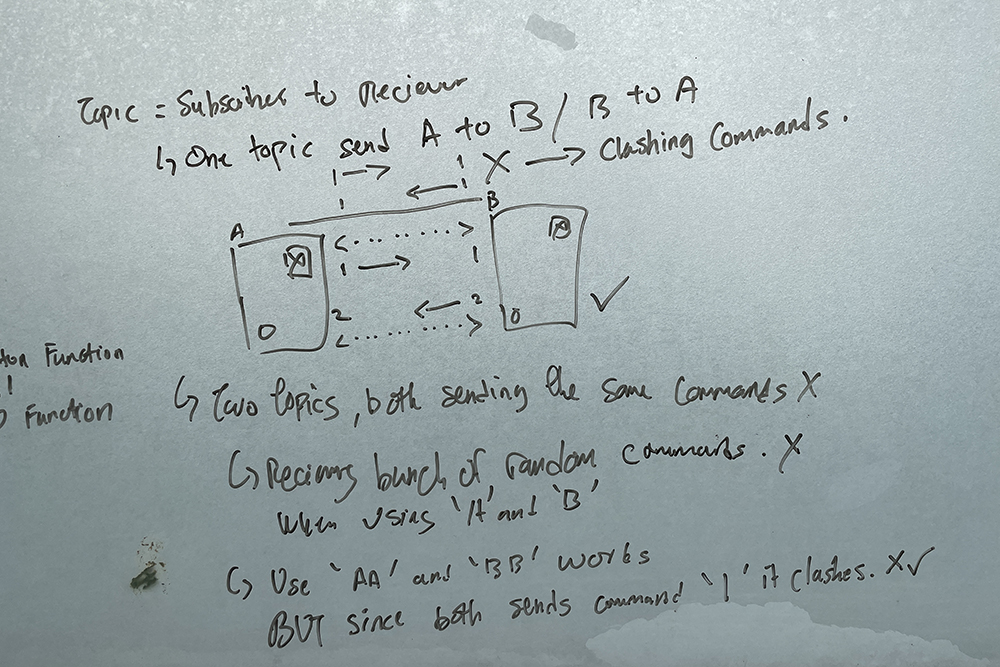 Topic = Subscibes to Reciever
↳ One topic send A to B / B to A
1 → ← 1 X → Clashing Commands.
1
A B
1 → 1
2 ← 2 ✓
0 0
ton Function
!
Function
↳ Two topics, both sending the same Commands X
↳ Recieving bunch of random commands. X
When using 'A' and 'B'
↳ Use 'AA' and 'BB' works
BUT since both sends command '1' it clashes. X✓